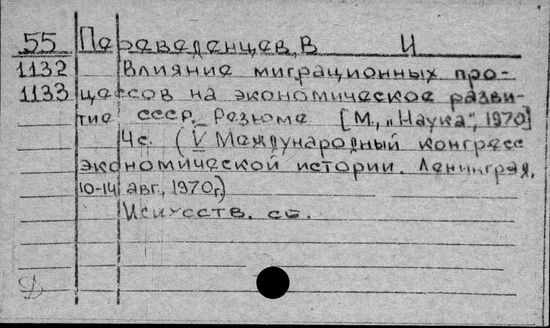 55 Переведенцев, В И
1132 Влияние миграционных про-
1133 цессов на экономическое разви-
тие СССР. Резюме [М., „Наука“, 1970]
4 с. (V Международный конгресс
экономической истории. Ленинград,
10-14 авг., 1970г.)
Искусств. об.